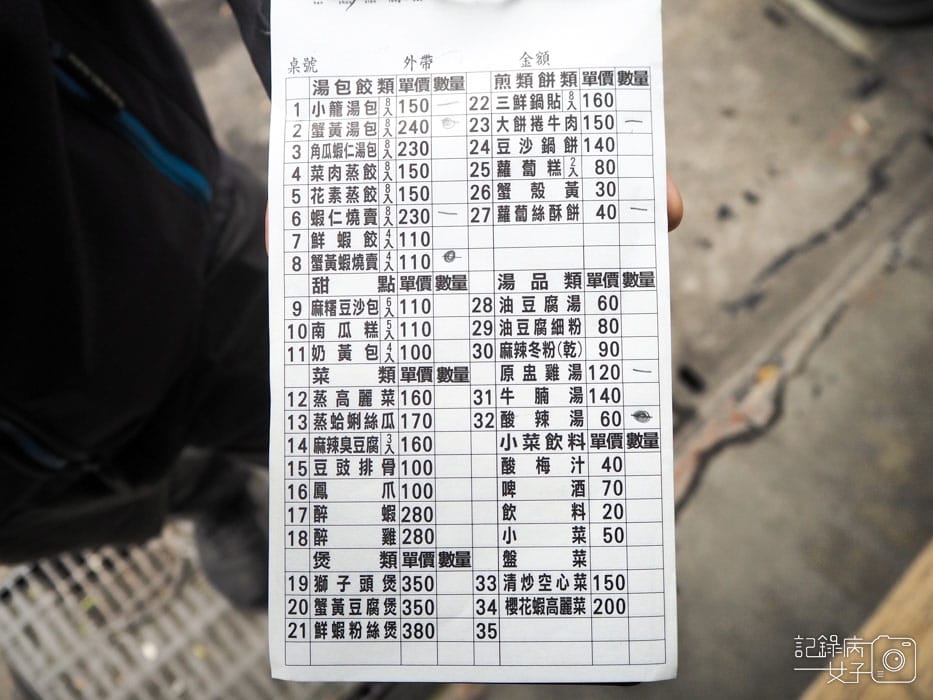 桌號 外帶 金額
湯包餃類 單價 數量
1 小龍湯包 8入 150 一
2 蟹黃湯包 8入 240
3 角瓜蝦仁湯包 8入 230
4 菜肉蒸餃 8入 150
5 花素蒸餃 8入 150
6 蝦仁燒賣 8入 230 一
7 鮮蝦餃 4入 110
8 蟹黃蝦燒賣 4入 110
甜點 單價 數量
9 麻糬豆沙包 6入 110
10 南瓜糕 5入 110
11 奶黃包 4入 100
菜類 單價 數量
12 蒸高麗菜 160
13 蒸蛤蜊絲瓜 170
14 麻辣臭豆腐 3入 160
15 豆豉排骨 100
16 鳳爪 100
17 醉蝦 280
18 醉雞 280
煲類 單價 數量
19 獅子頭煲 350
20 蟹黃豆腐煲 350
21 鮮蝦粉絲煲 380
煎類餅類 單價 數量
22 三鮮鍋貼 8入 160
23 大餅捲牛肉 150 一
24 豆沙鍋餅 140
25 蘿蔔糕 2入 80
26 蟹殼黃 30
27 蘿蔔絲酥餅 40 一
湯品類 單價 數量
28 油豆腐湯 60
29 油豆腐細粉 80
30 麻辣冬粉(乾) 90
原盅雞湯 120 一
31 牛腩湯 140
32 酸辣湯 60
小菜飲料 單價 數量
酸梅汁 40
啤酒 70
飲料 20
小菜 50
盤菜
33 清炒空心菜 150
34 櫻花蝦高麗菜 200
35
記錄病
女子